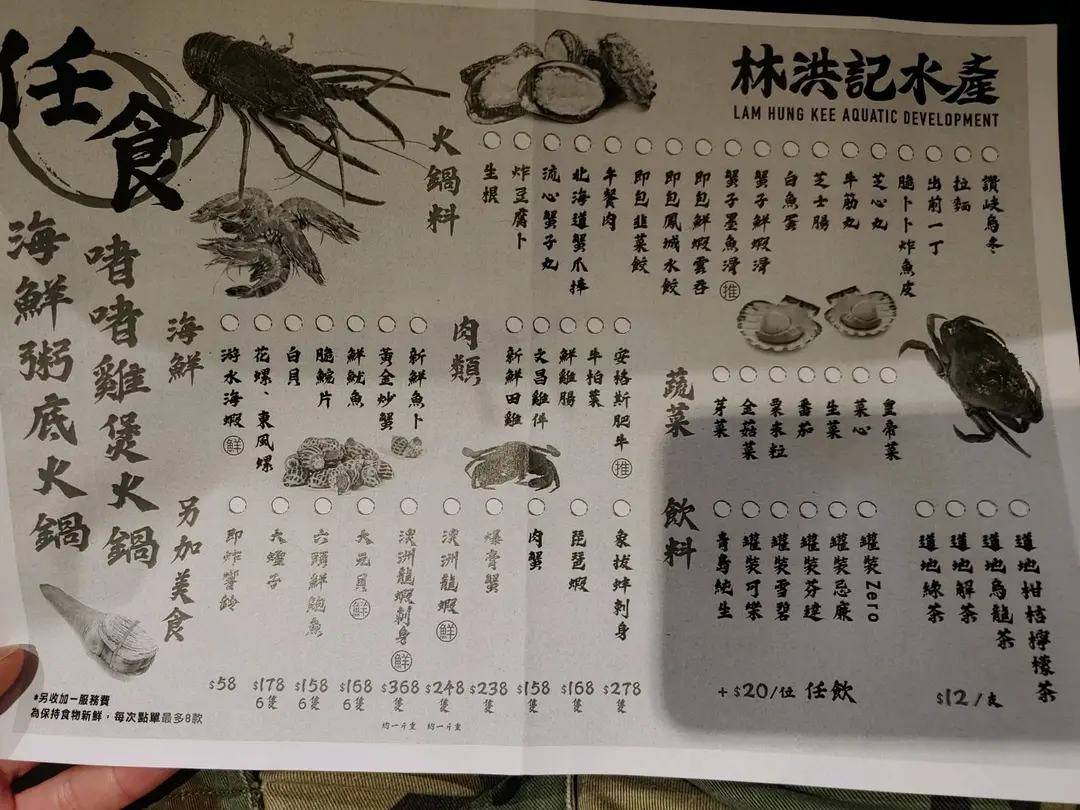 任食
林洪記水產
LAM HUNG KEE AQUATIC DEVELOPMENT
海鮮粥底火鍋
啫啫雞煲火鍋
火鍋料
生根
炸豆腐卜
流心蟹子丸
北海道蟹爪捧
午餐肉
即包韮菜餃
即包鳳城水餃
即包鮮蝦雲吞
蟹子墨魚滑 推
蟹子鮮蝦滑
白魚蛋
芝士腸
牛筋丸
芝心丸
脆卜卜炸魚皮
出前一丁
拉麵
讚岐烏冬
海鮮
游水海蝦 鮮
花螺、東風螺
白貝
脆鯇片
鮮魷魚
黃金炒蟹
新鮮魚卜
肉類
新鮮田雞
文昌雞件
鮮雞腸
牛柏葉
安格斯肥牛 推
蔬菜
芽菜
金菇菜
粟米粒
番茄
生菜
菜心
皇帝菜
另加美食
即炸響鈴 $58
大蟶子 $178 6隻
六頭鮮鮑魚 $158 6隻
大元貝 鮮 $168 6隻
澳洲龍蝦刺身 鮮 $368隻 約一斤重
澳洲龍蝦 鮮 $248隻 約一斤重
爆膏蟹 $238隻
肉蟹 $158隻
琵琶蝦 $168隻
象拔蚌刺身 $278隻
飲料
青島純生
罐裝可樂
罐裝雪碧
罐裝芬達
罐裝忌廉
罐裝Zero
+$20/位 任飲
道地綠茶
道地解茶
道地烏龍茶
道地柑桔檸檬茶
$12/支
*另收加一服務費
為保持食物新鮮，每次點單最多8款